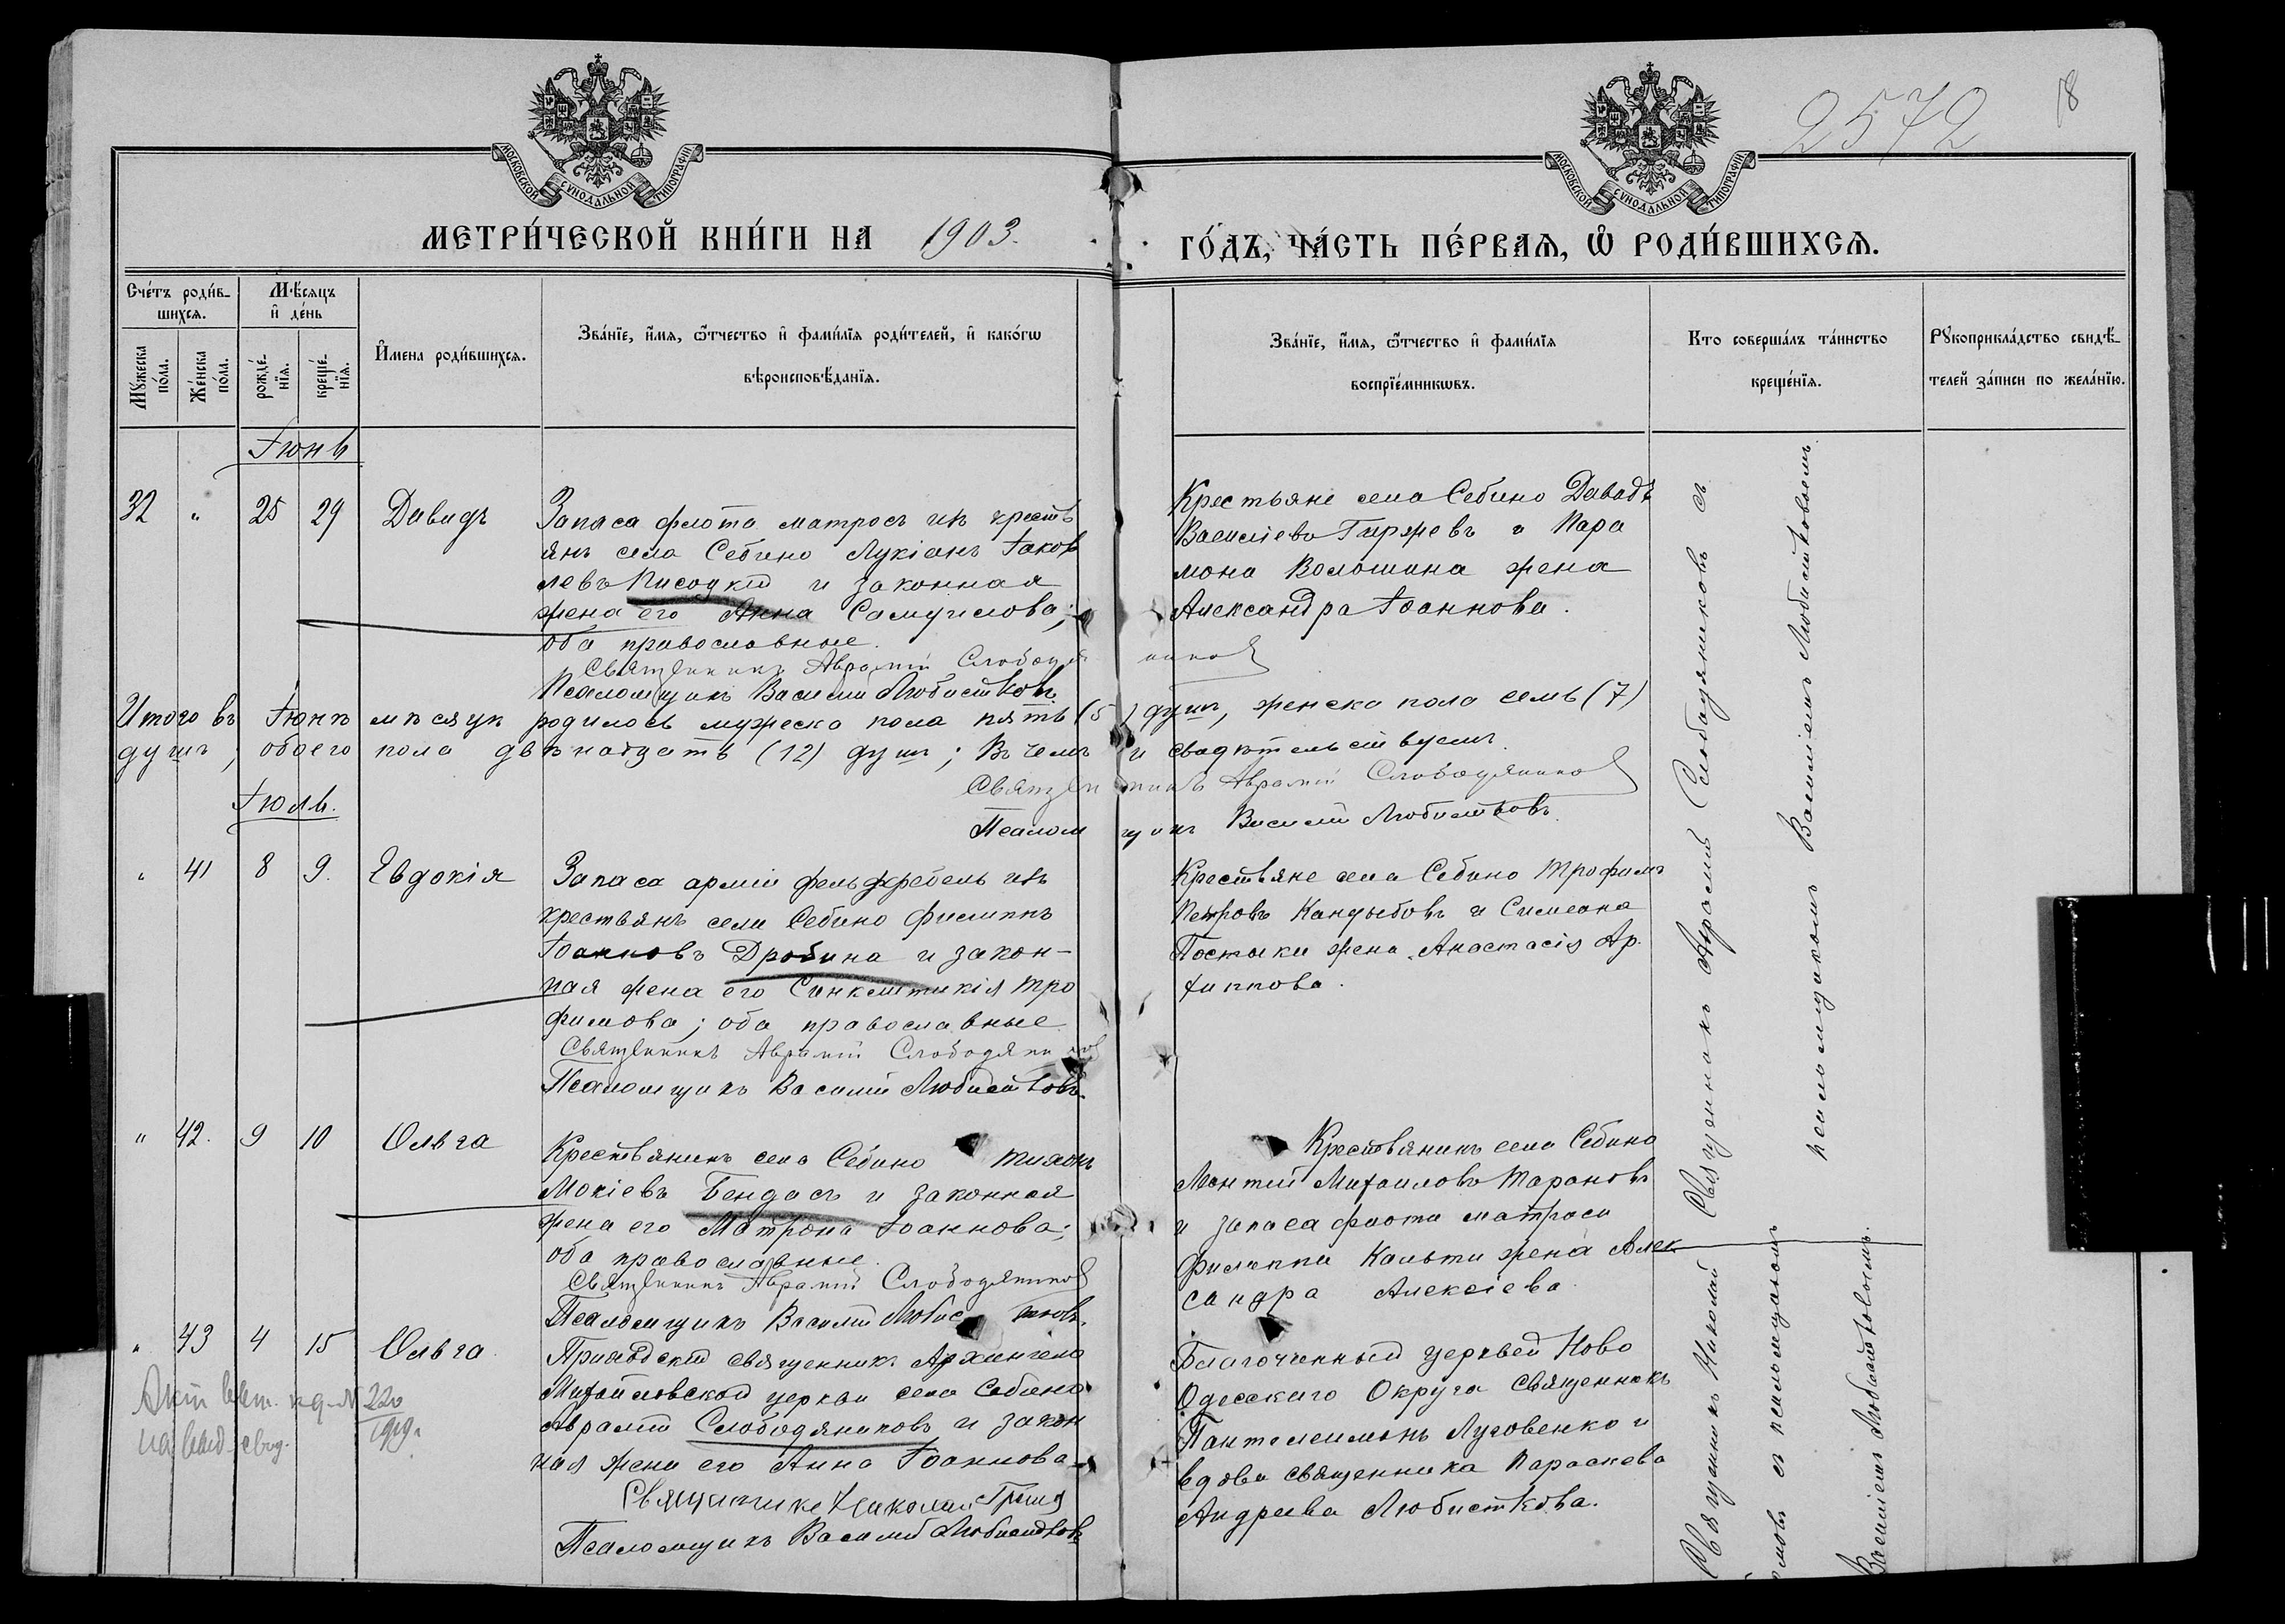 2572
18
МОСКОВСКОЙ СѴНОДАЛЬНОЙ ТИПОГРАФІИ
МОСКОВСКОЙ СѴНОДАЛЬНОЙ ТИПОГРАФІИ
МЕТРИ́ЧЕСКОЙ КНИ́ГИ НА 1903.
ГО́ДЪ, ЧА́СТЬ ПЕ́РВАЯ, Ѡ҆ РОДИ́ВШИХСЯ.
Сче́тъ роди́в-
шихся.
Мꙋ́жеска
по́ла.
Же́нска
по́ла.
Мѣ́сяцъ
и҆ де́нь
рожде́-
нїя.
креще́-
нїя.
И҆мена роди́вшихся.
Зва́нїе, и҆́мя, ѻ҆́тчество и҆ фами́лїя роди́телей, и҆ како́гѡ
вѣроисповѣ́данїя.
Зва́нїе, и҆́мя, ѻ҆́тчество и҆ фами́лїя
воспрїе́мникѡвъ.
Кто соверша́лъ та́инство
креще́нїя.
Рꙋкоприкла́дство свидѣ́-
телей за́писи по жела́нїю.
Іюнь
32 " 25 29 Давидъ
Запаса флота матросъ изъ кресть
янъ села Себино Лукіанъ Іаков
левъ Писоцкій и законная
жена его Анна Самуилова;
оба православные.
Священникъ Аврамій Слободяниковъ
Псаломщикъ Василій Любистковъ
Крестьяне села Себино Давидъ
Василіевъ Гиржевъ и Пара
мона Волошина жена
Александра Іоаннова.
Итого въ Іюнѣ мѣсяцѣ родилось мужеска пола пять (5) душъ, женска пола семь (7)
душъ, обоего пола двѣнадцать (12) душъ; Въ чемъ и свидѣтельствуемъ.
Священникъ Аврамій Слободяниковъ
Псаломщикъ Василій Любистковъ
Іюль.
" 41 8 9. Евдокія
Запаса арміи фельдфебель изъ
крестьянъ села Себино Филиппъ
Іоанновъ Дробина и закон-
ная жена его Синклитикія Тро
фимова; оба православные
Священникъ Аврамій Слободяниковъ
Псаломщикъ Василій Любистковъ.
Крестьяне села Себино Трофимъ
Петровъ Кандыбовъ и Симеона
Постыки жена Анастасія Ар.
хиппова.
" 42. 9 10 Ольга
Крестьянинъ села Себино Тихонъ
Мокіевъ Бендасъ и законная
жена его Матрона Іоаннова;
оба православные.
Священникъ Аврамій Слободяниковъ
Псаломщикъ Василій Любистковъ.
Крестьянинъ села Себино
Леонтій Михаиловъ Тарановъ
и запаса флота матроса
Филиппа Кальти жена Алек
сандра Алексіева
" 43 4 15 Ольга
Приходскій священникъ Архангело
Михайловской церкви села Себино
Аврамій Слободяниковъ и закон
ная жена его Анна Іоаннова
Священникъ Николай
Псаломщикъ Василій Любистковъ
Благочинный церквей Ново
Одесскаго Округа Священникъ
Пантелеимонъ Луговенко и
вдова священника Параскева
Андреева Любисткова.
220
1919
Священникъ Аврамій Слободяниковъ съ
псаломщикомъ Василіемъ Любистковымъ
Священникъ Николай
съ псаломщикомъ
Василіемъ Любистковымъ.